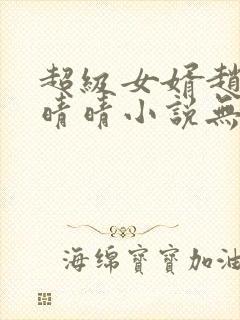 超级女婿趙
晴晴小説無
海绵寶寶加油